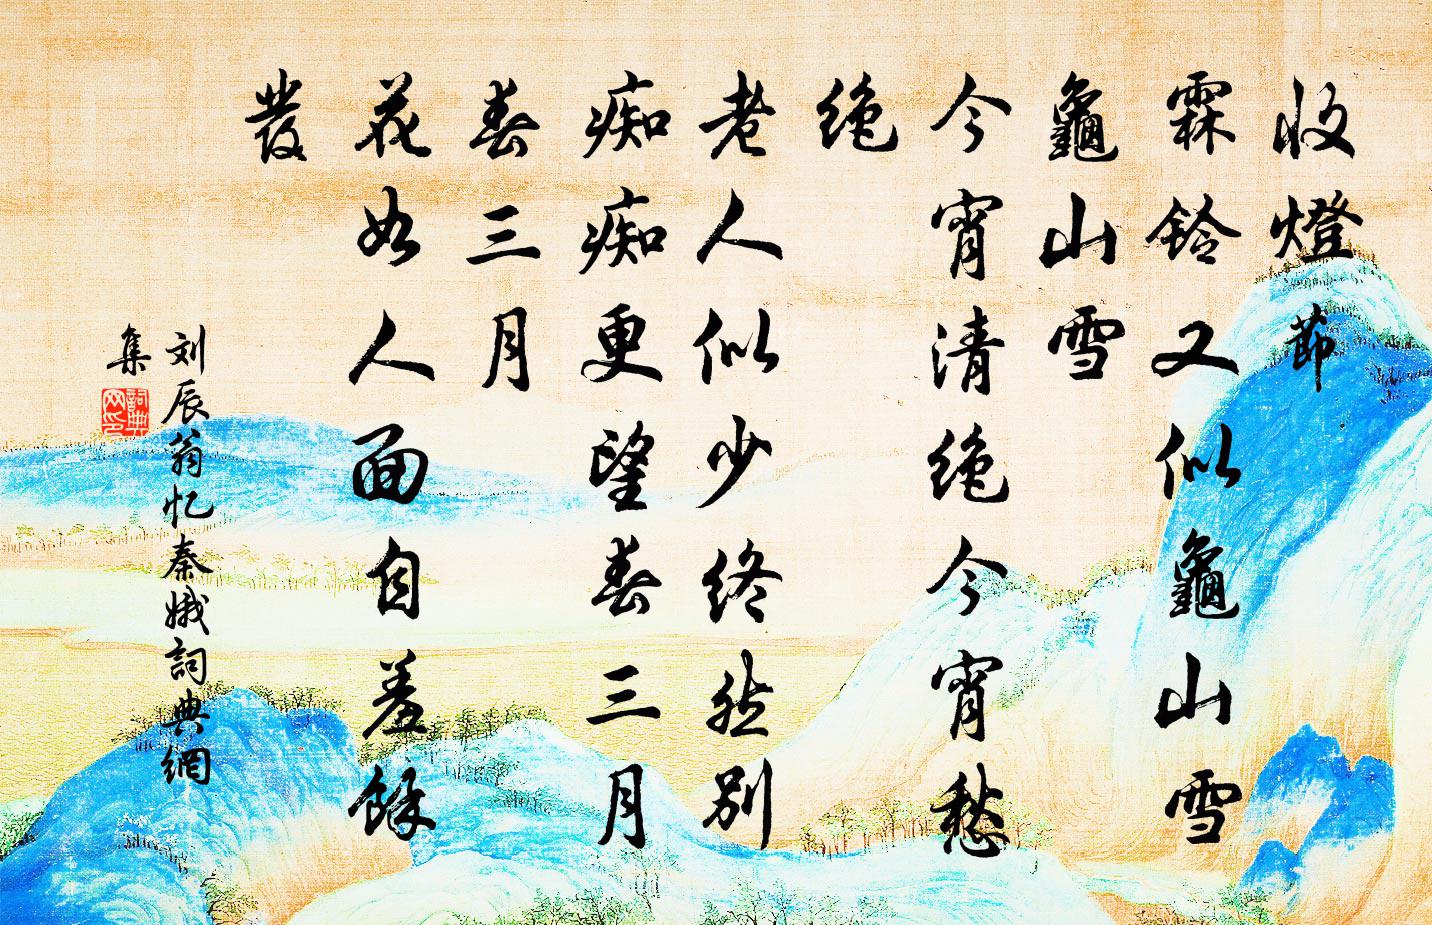 收燈節
霖鈴又似龜山雪
龜山雪
今宵清绝今宵愁
绝
老人似少终然别
痴痴更望春三月
春三月
花如人面自羞餘
發
刘辰翁忆秦娥詞典網
集
詞典
网印